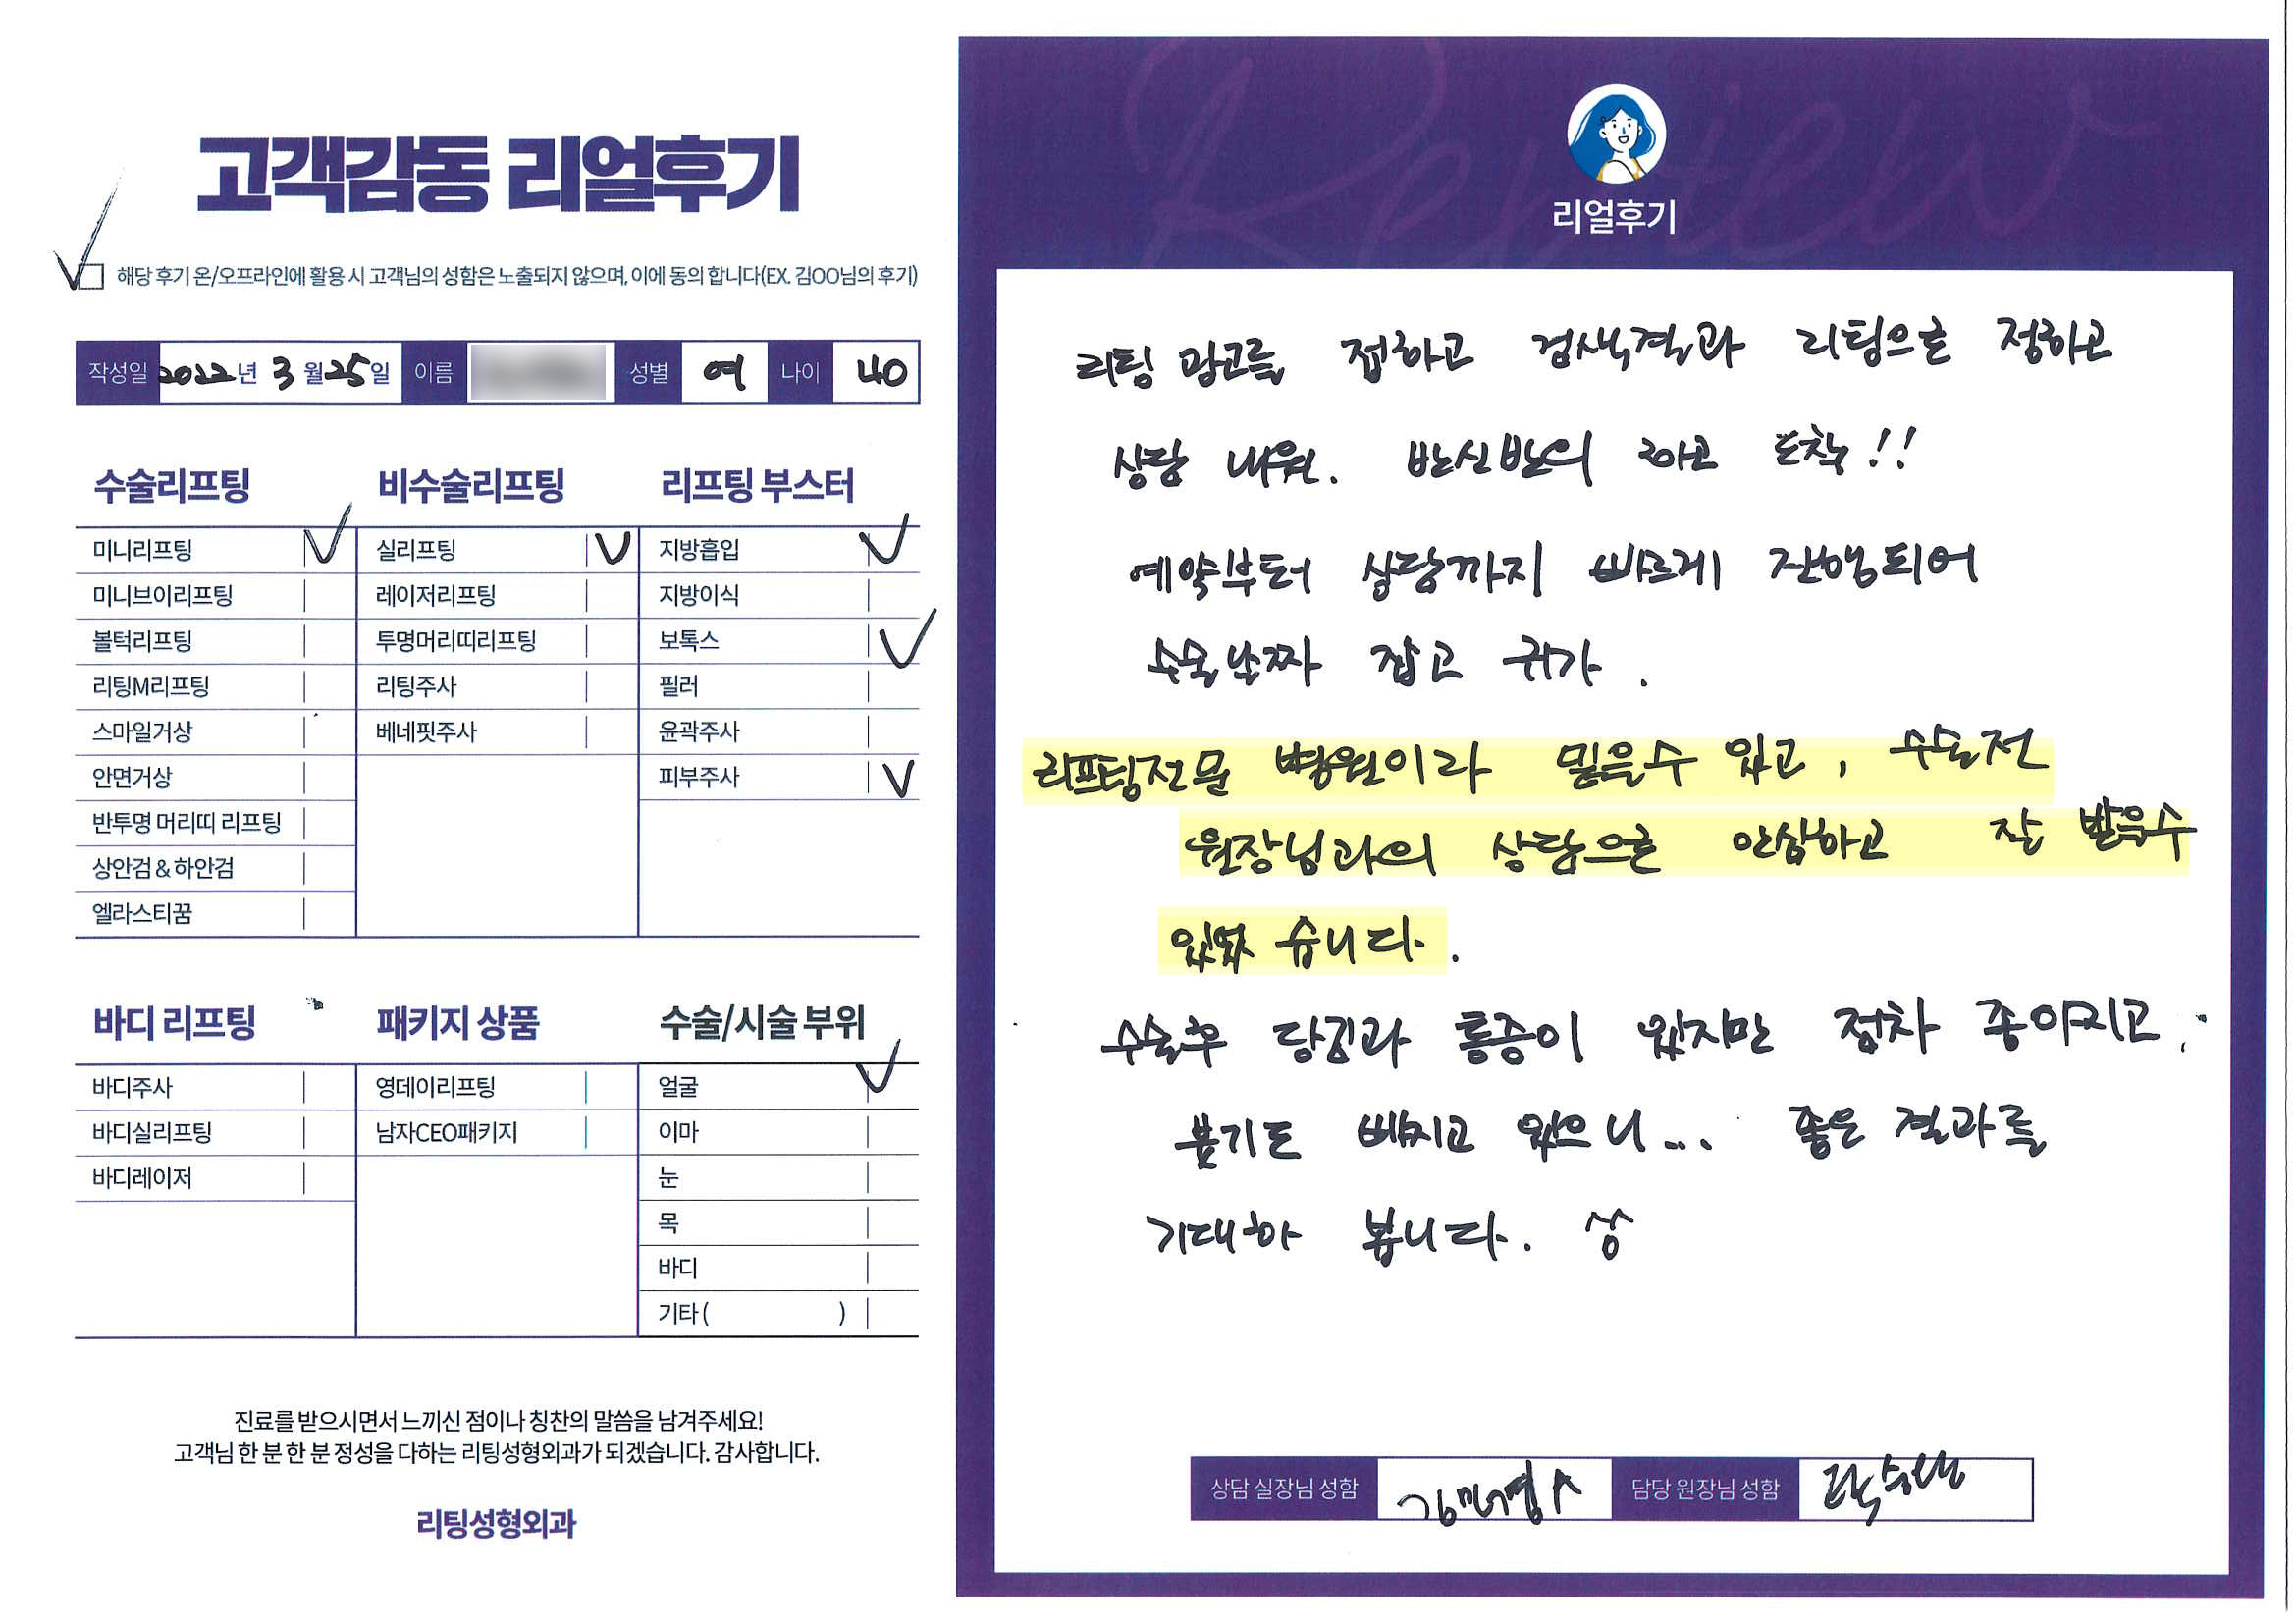 고객감동 리얼후기
해당 후기 온/오프라인에 활용 시 고객님의 성함은 노출되지 않으며, 이에 동의 합니다(EX. 김OO님의 후기)
작성일 2022년 3월 25일 이름 성별 여 나이 40
수술리프팅 비수술리프팅 리프팅 부스터
미니리프팅 실리프팅 지방흡입
미니브이리프팅 레이저리프팅 지방이식
볼턱리프팅 투명머리띠리프팅 보톡스
리팅M리프팅 리팅주사 필러
스마일거상 베네핏주사 윤곽주사
안면거상 피부주사
반투명 머리띠 리프팅
상안검 & 하안검
엘라스티꿈
바디 리프팅 패키지 상품 수술/시술 부위
바디주사 영데이리프팅 얼굴
바디실리프팅 남자CEO패키지 이마
바디레이저 눈
목
바디
기타 ( )
진료를 받으시면서 느끼신 점이나 칭찬의 말씀을 남겨주세요!
고객님 한 분 한 분 정성을 다하는 리팅성형외과가 되겠습니다. 감사합니다.
리팅성형외과
Review
리얼후기
리팅 광고를 접하고 검색결과 리팅으로 정하고
상담 내원. 반신반의 하고 도착!!
예약부터 상담까지 빠르게 진행되어
수술날짜 잡고 귀가.
리프팅전문 병원이라 믿을수 있고, 수술전
원장님과의 상담으로 안심하고 잘 받을수
있었습니다.
수술후 당김과 통증이 있지만 점차 좋아지고.
붓기도 빠지고 있으니... 좋은 결과를
기대해 봅니다.
상담 실장님 성함 담당 원장님 성함